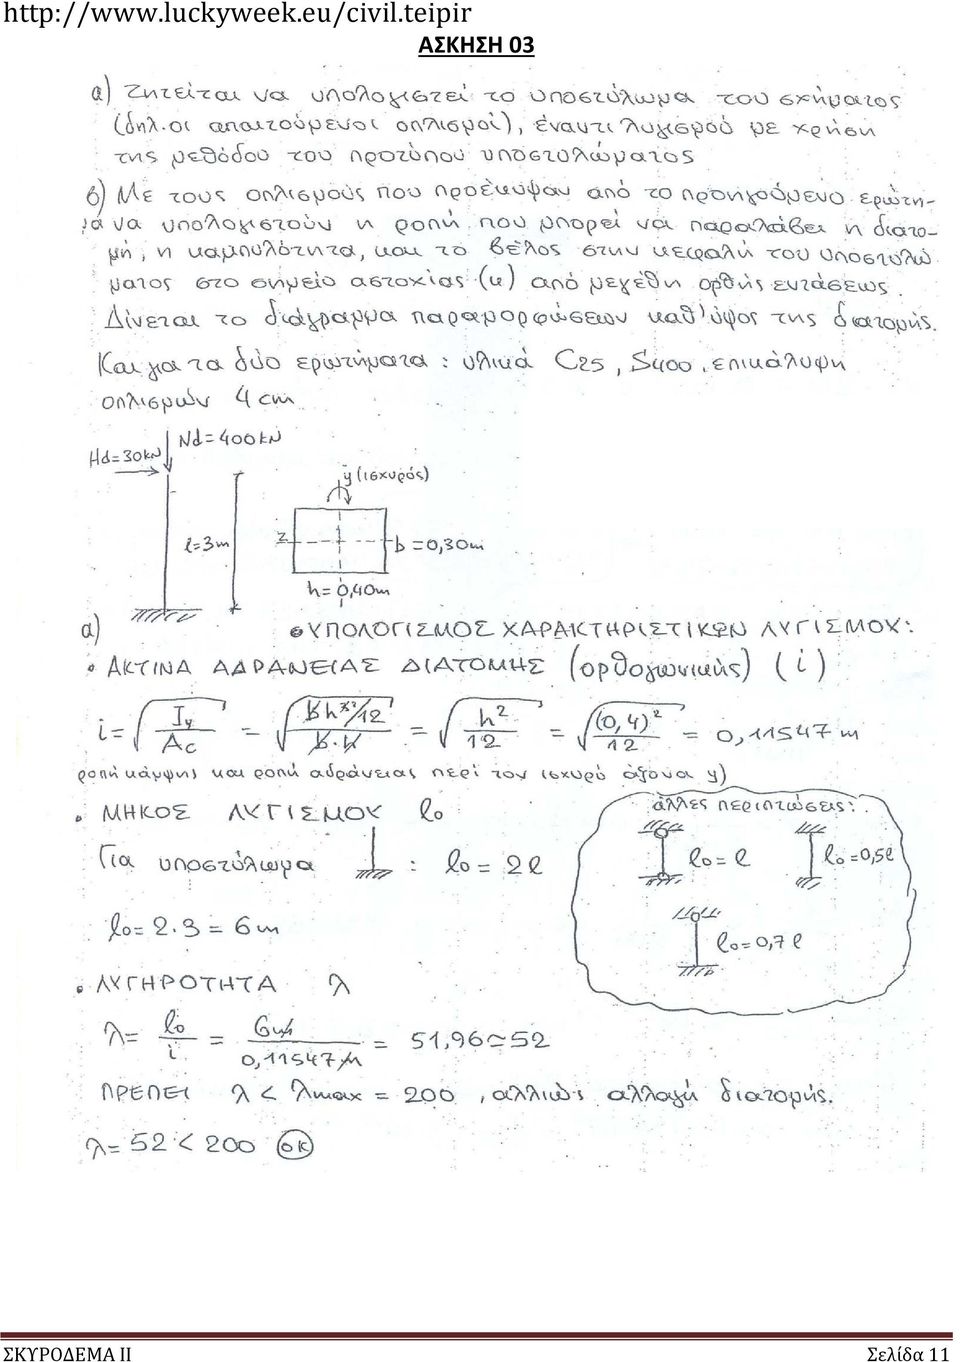 http://www.luckyweek.eu/civil.teipir
ΑΣΚΗΣΗ 03
α) Ζητείται να υπολογιστεί το υποστύλωμα του σχήματος
(δηλ. οι απαιτούμενοι οπλισμοί), έναντι λυγισμού με χρήση
της μεθόδου του προτύπου υποστυλώματος
β) Με τους οπλισμούς που προέκυψαν από το προηγούμενο ερώτη-
μα να υπολογιστούν η ροπή που μπορεί να παραλάβει η διατο-
μή, η καμπυλότητα, και το βέλος στην κεφαλή του υποστυλώ
ματος στο σημείο αστοχίας (u) από μεγέθη ορθής εντάσεως.
Δίνεται το διάγραμμα παραμορφώσεων καθ' ύψος της διατομής.
Και για τα δύο ερωτήματα : υλικά C25, S400, επικάλυψη
οπλισμών 4 cm
Hd=30kN
Nd=400kN
l=3m
y (ισχυρός)
z
b=0,30m
h=0,40m
α) ΥΠΟΛΟΓΙΣΜΟΣ ΧΑΡΑΚΤΗΡΙΣΤΙΚΩΝ ΛΥΓΙΣΜΟΥ:
• ΑΚΤΙΝΑ ΑΔΡΑΝΕΙΑΣ ΔΙΑΤΟΜΗΣ (ορθογωνικής) (i)
i = √(Iy/Ac) = √((bh³/12)/(b·h)) = √(h²/12) = √((0,4)²/12) = 0,11547 m
ροπή κάμψης και ροπή αδράνειας περί τον ισχυρό άξονα y)
• ΜΗΚΟΣ ΛΥΓΙΣΜΟΥ lo
Για υποστύλωμα : lo = 2l
lo = 2·3 = 6m
άλλες περιπτώσεις:
lo = l
lo = 0,5l
lo = 0,7l
• ΛΥΓΗΡΟΤΗΤΑ λ
λ = lo/i = 6m/0,11547m = 51,96 ≃ 52
ΠΡΕΠΕΙ λ < λmax = 200, αλλιώς αλλαγή διατομής.
λ = 52 < 200 OK
ΣΚΥΡΟΔΕΜΑ ΙΙ Σελίδα 11